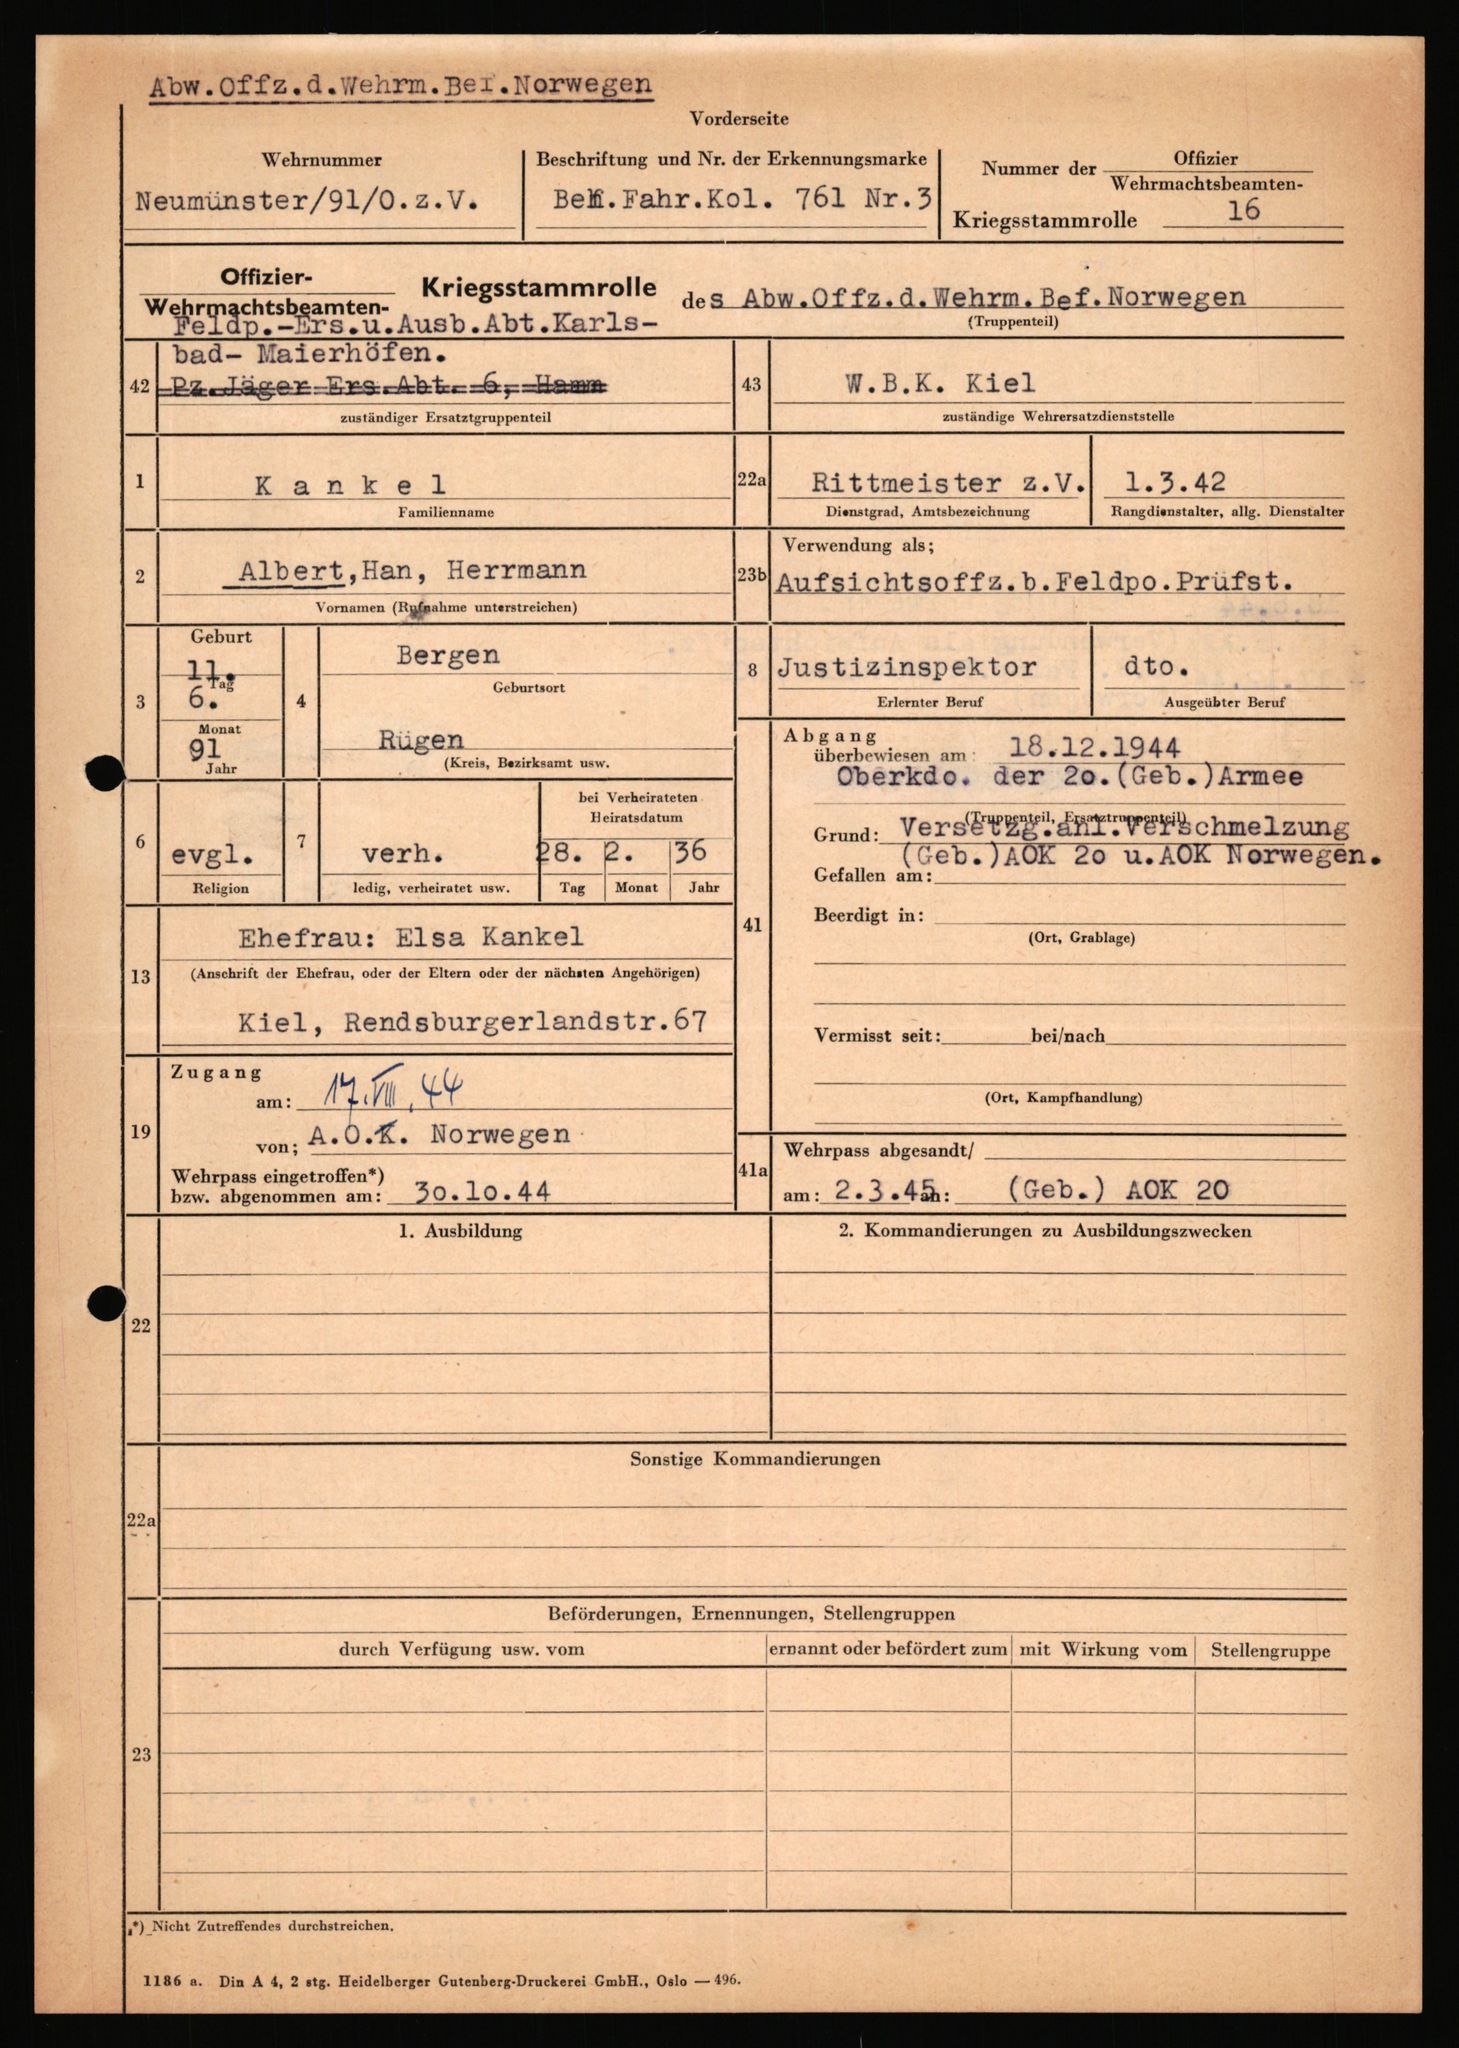 Abw.Offz.d.Wehrm.Bef.Norwegen
Vorderseite
Wehrnummer
Neumünster/91/O.z.V.
Beschriftung und Nr. der Erkennungsmarke
Fahr.Kol. 761 Nr.3
Nummer der Offizier
Wehrmachtsbeamten-
Kriegsstammrolle 16
Offizier-
Wehrmachtsbeamten-
Kriegsstammrolle des Abw.Offz.d.Wehrm.Bef.Norwegen
(Truppenteil)
Feldp.-Ers.u.Ausb.Abt.Karls-
bad- Maierhöfen.
42 Pz.Jäger Ers.Abt. 6, Hamm
zuständiger Ersatztgruppenteil
43 W.B.K. Kiel
zuständige Wehrersatzdienststelle
1 Kankel
Familienname
22a Rittmeister z.V. 1.3.42
Dienstgrad, Amtsbezeichnung Rangdienstalter, allg. Dienstalter
2 Albert,Han, Herrmann
Vornamen (Rufnahme unterstreichen)
23b Verwendung als;
Aufsichtsoffz.b.Feldpo.Prüfst.
3 Geburt
11.
Tag
6.
Monat
91
Jahr
4 Bergen
Geburtsort
Rügen
(Kreis, Bezirksamt usw.
8 Justizinspektor dto.
Erlernter Beruf Ausgeübter Beruf
6 evgl.
Religion
7 verh.
ledig, verheiratet usw.
bei Verheirateten
Heiratsdatum
28. 2. 36
Tag Monat Jahr
41 Abgang
überbewiesen am: 18.12.1944
Oberkdo. der 2o.(Geb.)Armee
(Truppenteil, Ersatztruppenteil)
Grund: Versetzg.anl.Verschmelzung
(Geb.)AOK 2o u.AOK Norwegen.
Gefallen am:
Beerdigt in:
(Ort, Grablage)
Vermisst seit: bei/nach
(Ort, Kampfhandlung)
13 Ehefrau: Elsa Kankel
(Anschrift der Ehefrau, oder der Eltern oder der nächsten Angehörigen)
Kiel, Rendsburgerlandstr.67
19 Zugang
am: 17.VIII.44
von; A.O.K. Norwegen
Wehrpass eingetroffen*)
bzw. abgenommen am: 30.10.44
41a Wehrpass abgesandt/
am: 2.3.45 an: (Geb.) AOK 20
22 1. Ausbildung
2. Kommandierungen zu Ausbildungszwecken
22a Sonstige Kommandierungen
23 Beförderungen, Ernennungen, Stellengruppen
durch Verfügung usw. vom ernannt oder befördert zum mit Wirkung vom Stellengruppe
*) Nicht Zutreffendes durchstreichen.
1186 a. Din A 4, 2 stg. Heidelberger Gutenberg-Druckerei GmbH., Oslo — 496.